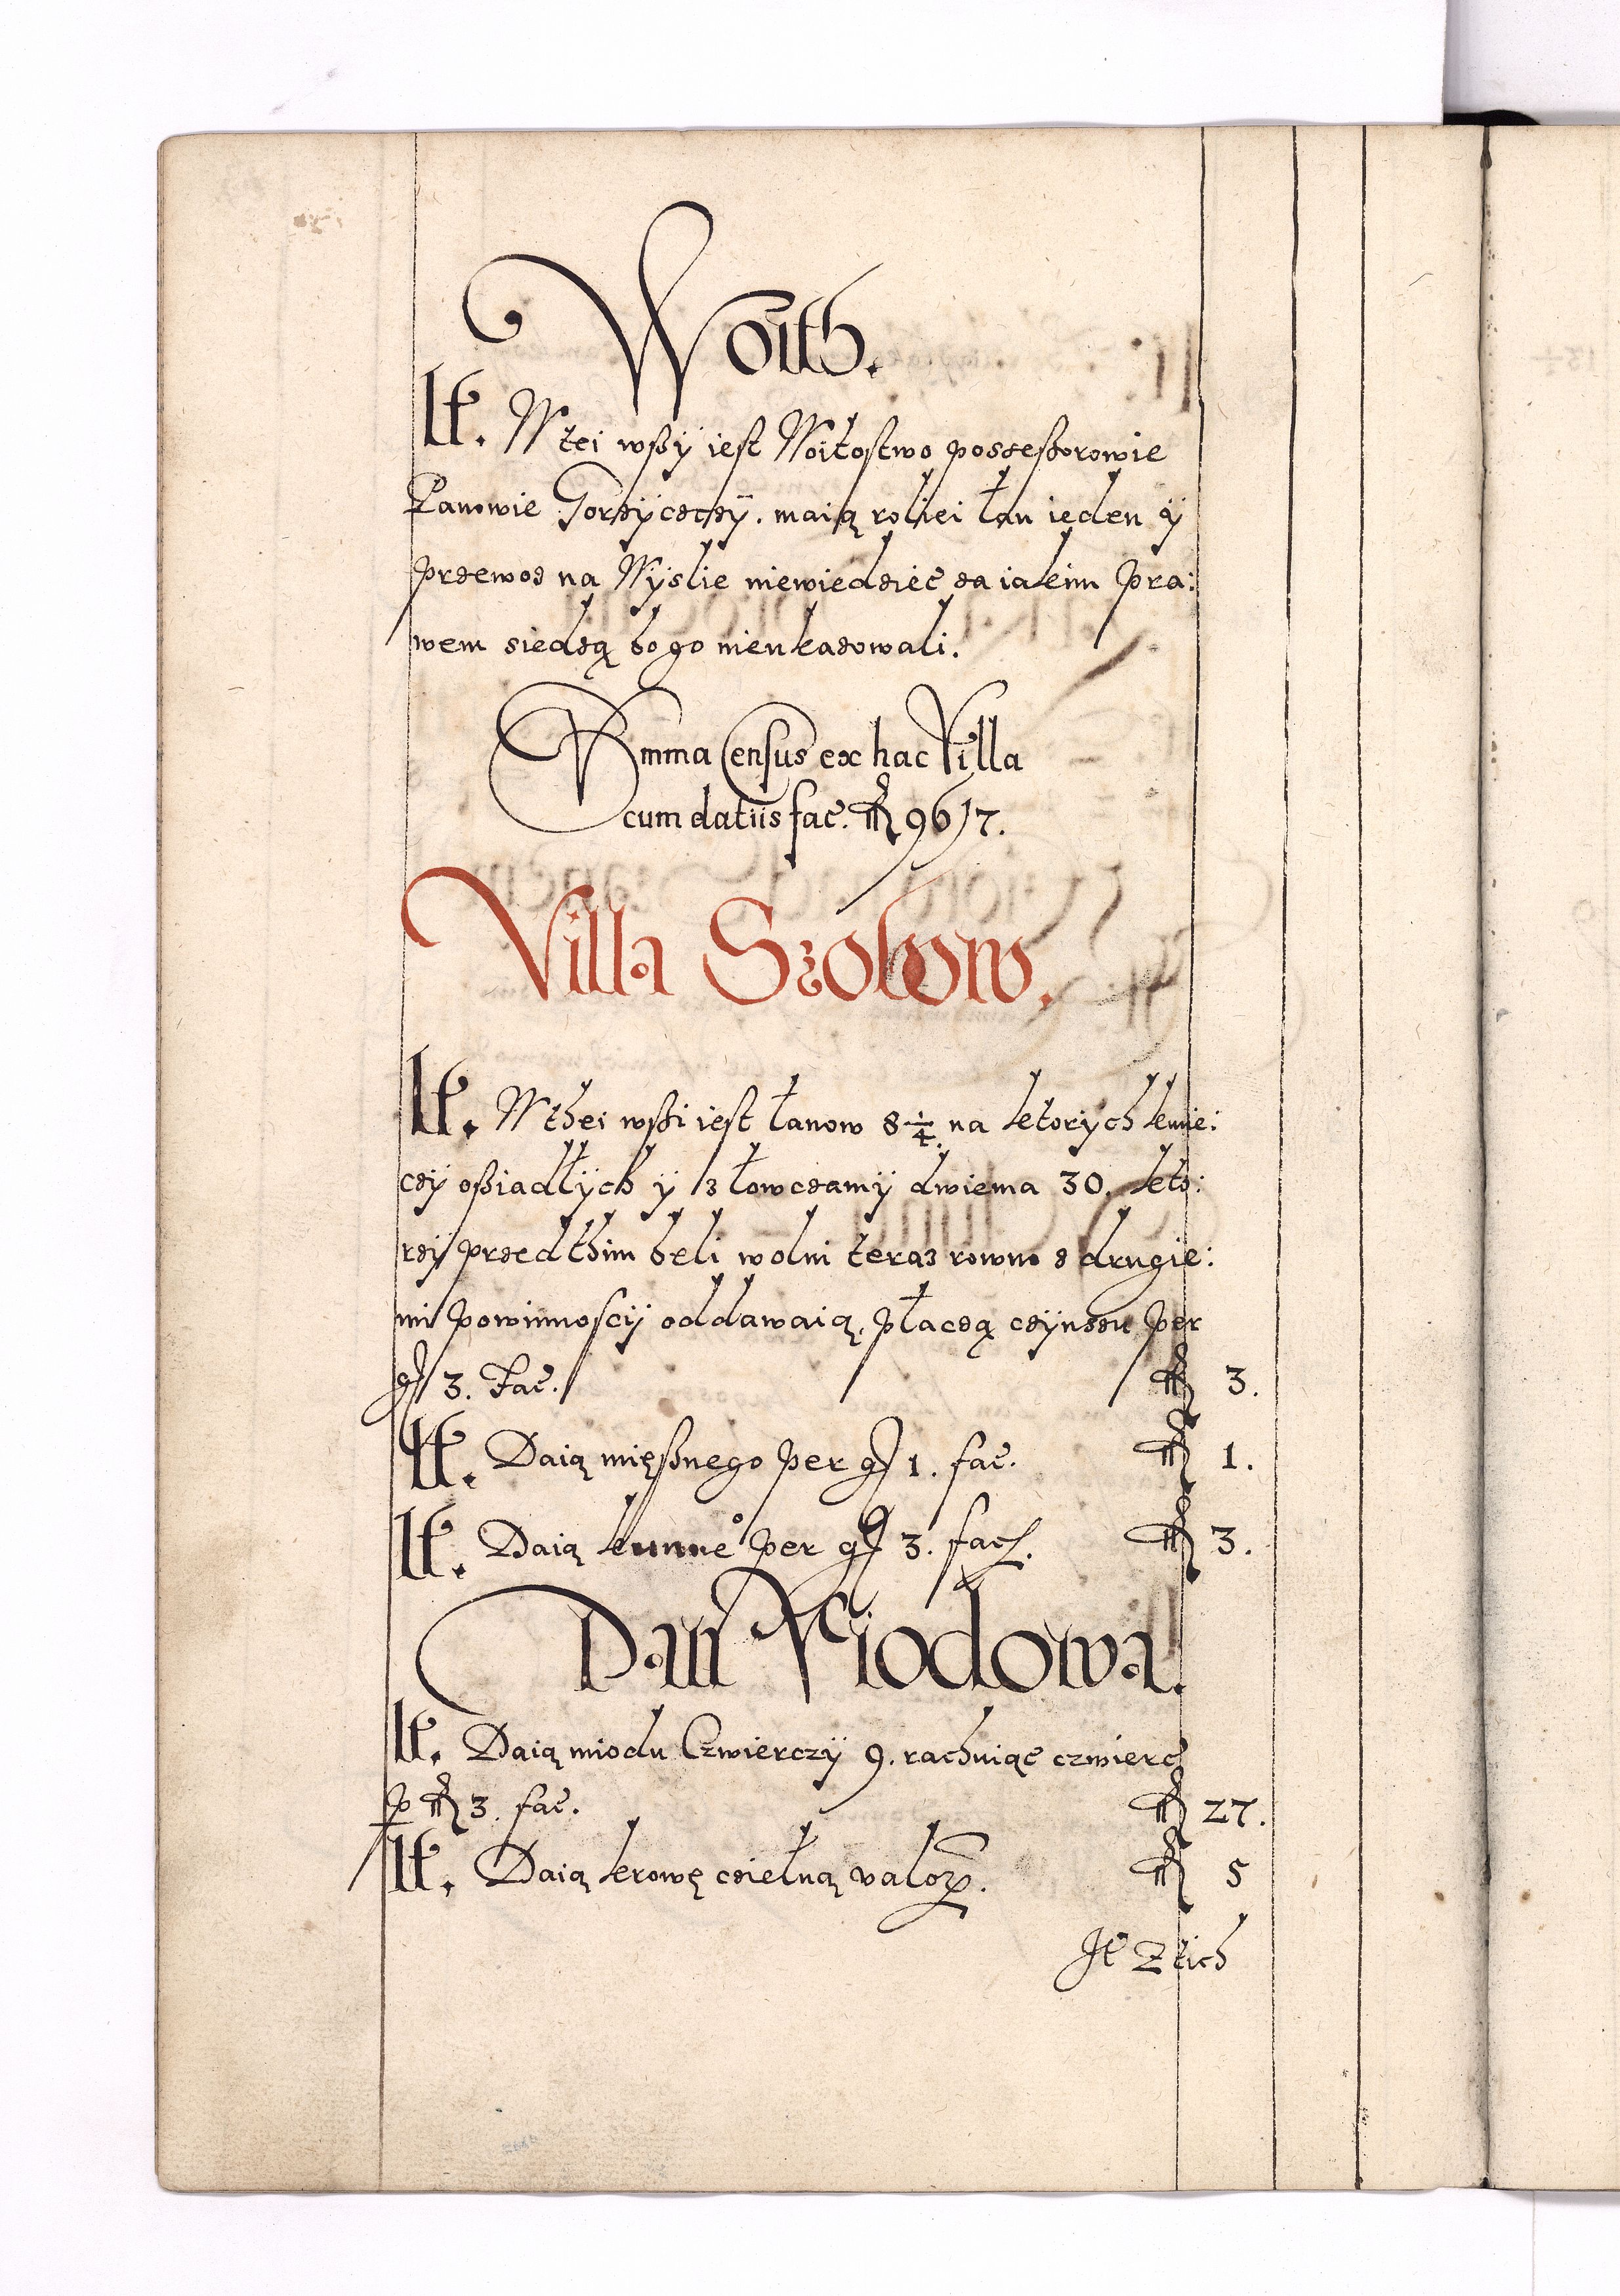 Woith.
It. W tei wßÿ iest Woitostwo posseßorowie
Panowie Gorzÿczczÿ. maią roliei łan ieden ÿ
przewoz na Wÿslie niewiedzieć za iakim pra:
wem siedzą bo go nieukazowali.
Summa Census ex hac Villa
cum datiis fac. fl 96/7.
Villa Szokow.
It. W thei wßi iest łanow 8 1/4. na ktorÿch kmie:
czÿ oßiadłÿch ÿ z łowczamÿ dwiema 30. kto:
rzÿ przedthim beli wolni teraz rowno z drugie:
mi powinnoscÿ oddawaią, płaczą czÿnszu per
g 3. Fac. fl 3.
It. Daią mięßnego per g 1. fac. fl 1.
It. Daią kunne° per g 3. fac. fl 3.
Dan Miodowa.
It. Daią miodu Czwierczÿ 9. rachuiąc czwierć
p fl 3. fac. fl 27.
It. Daią krowę czielną valor. fl 5
It Ztich